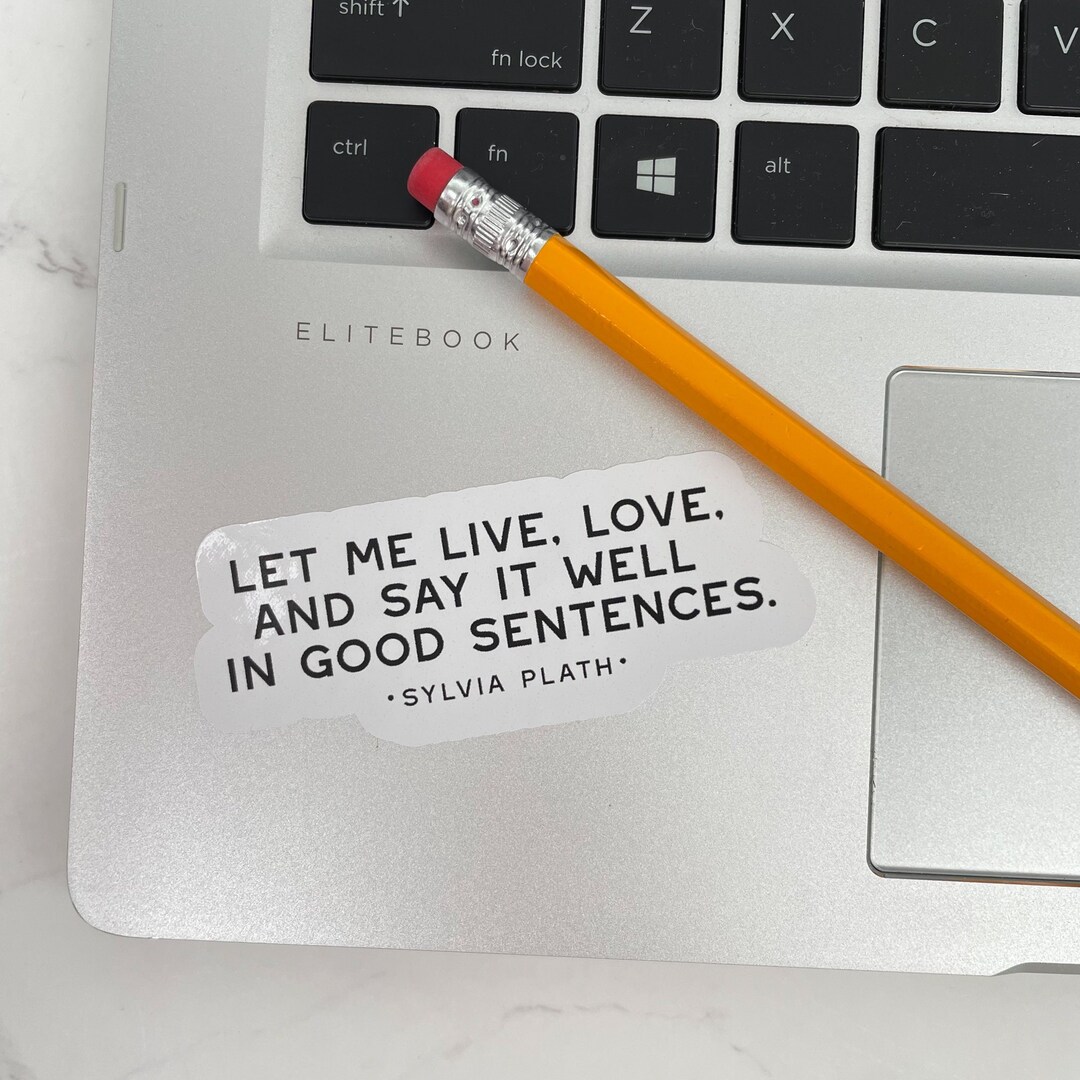 shift ↑
fn lock
Z
X
C
V
ctrl
fn
alt
ELITEBOOK
LET ME LIVE, LOVE,
AND SAY IT WELL
IN GOOD SENTENCES.
•SYLVIA PLATH•